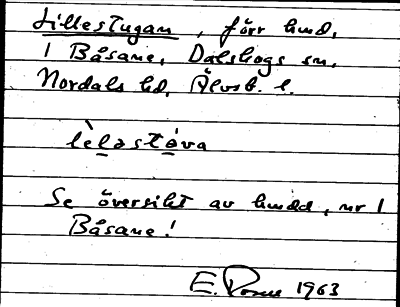 Lillestugan, förr hmd,
1 Båsane, Dalskogs sn,
Nordals hd, Älvsb. l.
lèləstə̀va
Se översikt av hmdd, nr 1
Båsane!
E. 1963